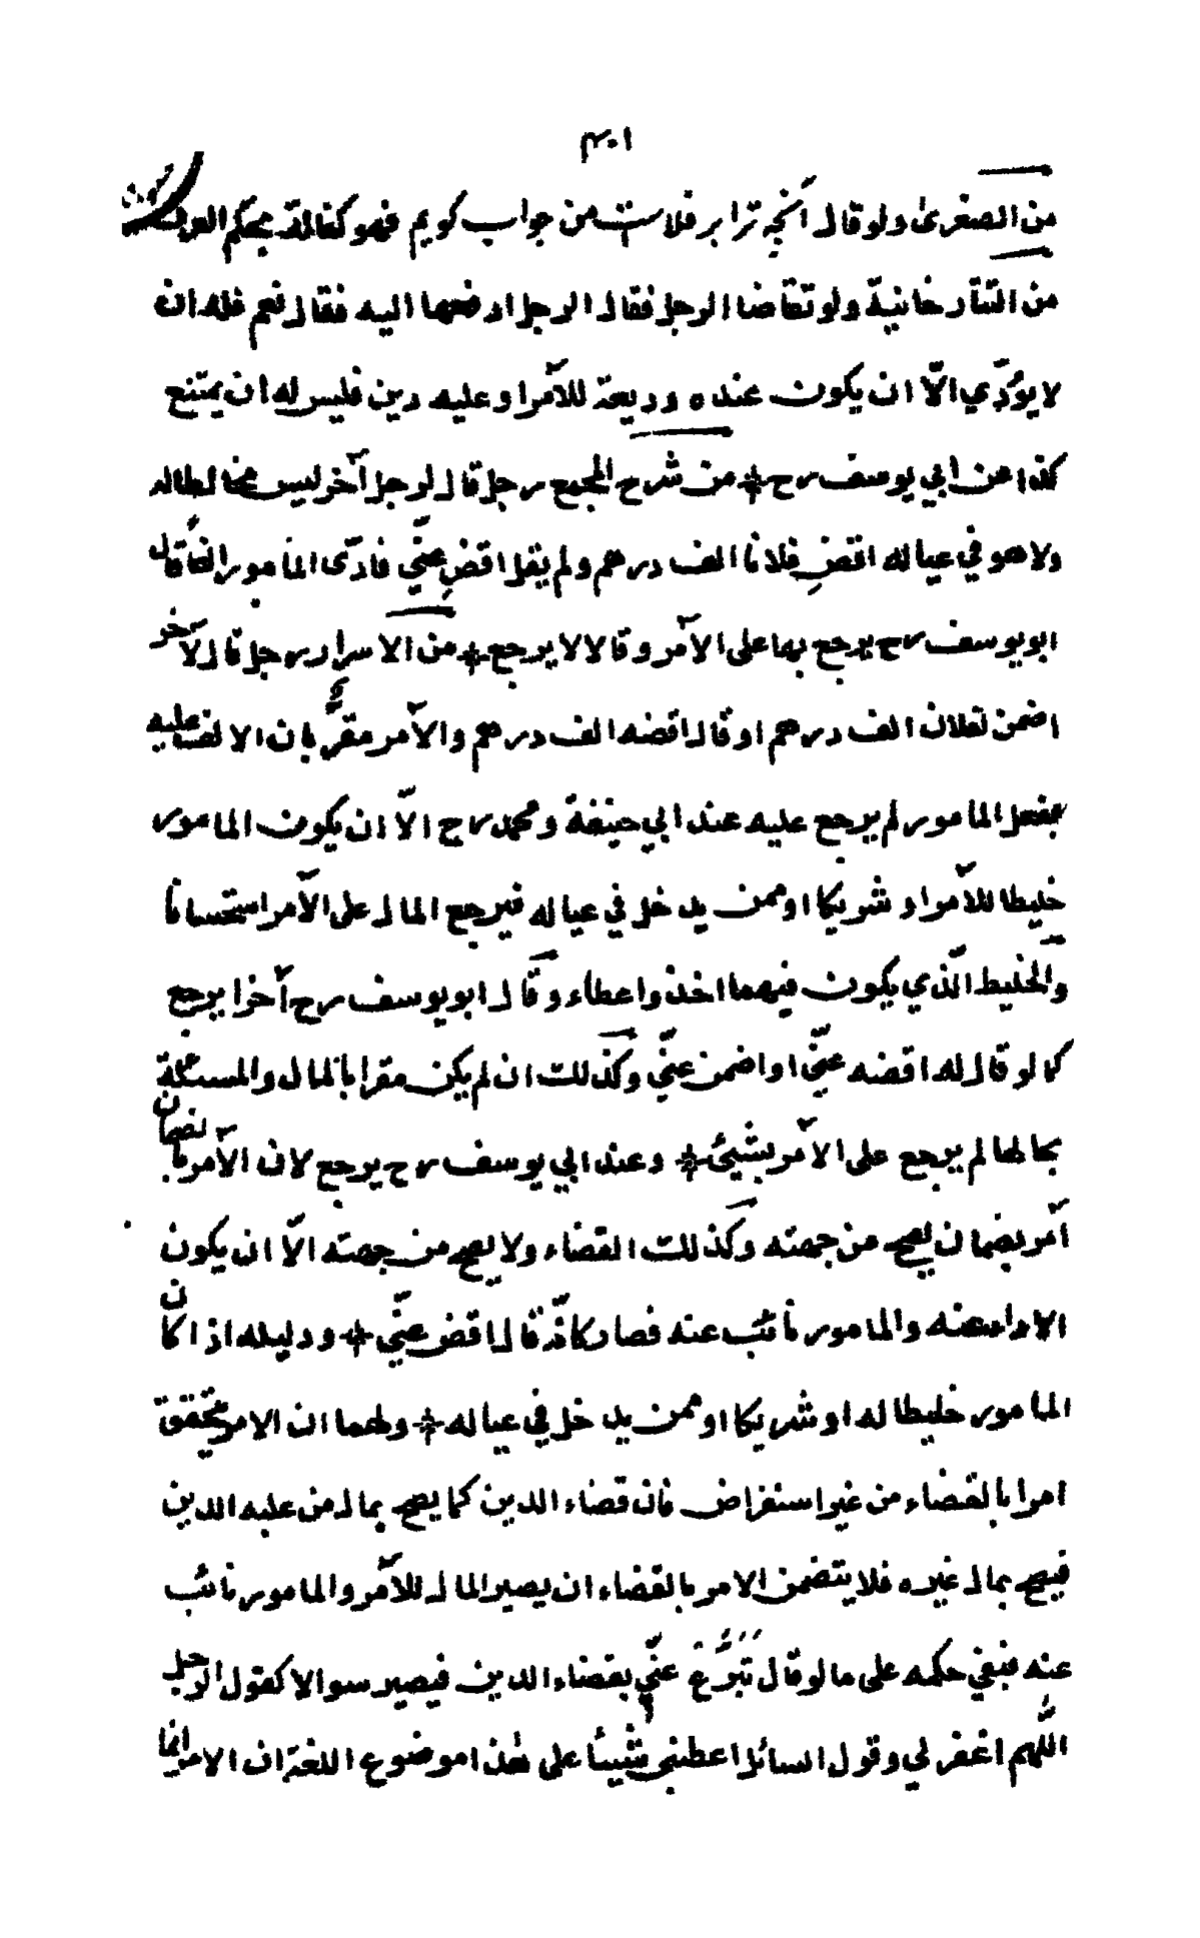 ٣٠١
من الصغرىٰ ولو قال آنچه ترا بر فلاست من جواب كويم فهو كفالة بحكم العرف
من التتارخانية ولو تقاضا الرجل فقال الرجل ادفعها اليه فقال نعم فله ان
لا يؤدّي الّا ان يكون عنده وديعة للآمر او عليه دين فليس له ان يمتنع
كذا عن ابي يوسف رح من شرح المجمع رجل قال لرجل آخر ليس بمخالط له
ولا هو في عياله اقضِ فلانا الف درهم ولم يقل اقضِ عنّي فادّى المأمور الفًا قال
ابو يوسف رح يرجع بها على الآمر وقالا لا يرجع من الاسرار رجل قال لآخر
اضمن لفلان الف درهم او قال اقضه الف درهم والآمر مقرٌّ بان الالف عليه
ففعل المامور لم يرجع عليه عند ابي حنيفة ومحمد رح الّا ان يكون المامور
خليطا للآمر او شريكا او ممن يدخل في عياله فيرجع المال على الآمر استحسانا
والخليط الّذي يكون فيهما اخذ واعطاء وقال ابو يوسف رح آخرا يرجع
كما لو قال له اقضه عنّي او اضمن عنّي وكذلك ان لم يكن مقرا بالمال والمسئلة
بحالها لم يرجع على الآمر بشيئ وعند ابي يوسف رح يرجع لان الآمر بالضمان
آمر بضمان يصح من جهته وكذلك القضاء ولا يصح من جهته الّا ان يكون
الاداء عنه والمامور نائب عنه فصار كانّه قال اقض عنّي ودليله اذا كان
المامور خليطا له او شريكا او ممن يدخل في عياله ولهما ان الامر يتحقق
امرا بالقضاء من غير استقراض فان قضاء الدين كما يصح بمال من عليه الدين
فيصح بمال غيره فلا يتضمن الامر بالقضاء ان يصير المال للآمر والمامور نائب
عنه فبقي حكمه على ما لو قال تَبَرَّعْ عنّي بقضاء الدين فيصير سوالا كقول الرجل
اللّهم اغفر لي وقول السائل اعطني شيئا على هٰذا موضوع اللغة ان الامر انما